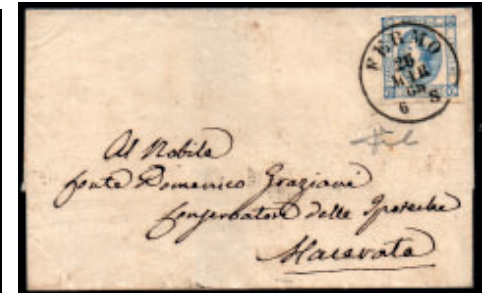 FERMO
26
MAR
65
6 S
Al Nobile
Conte Domenico Graziani
Conservatore delle Ipoteche
Macerata